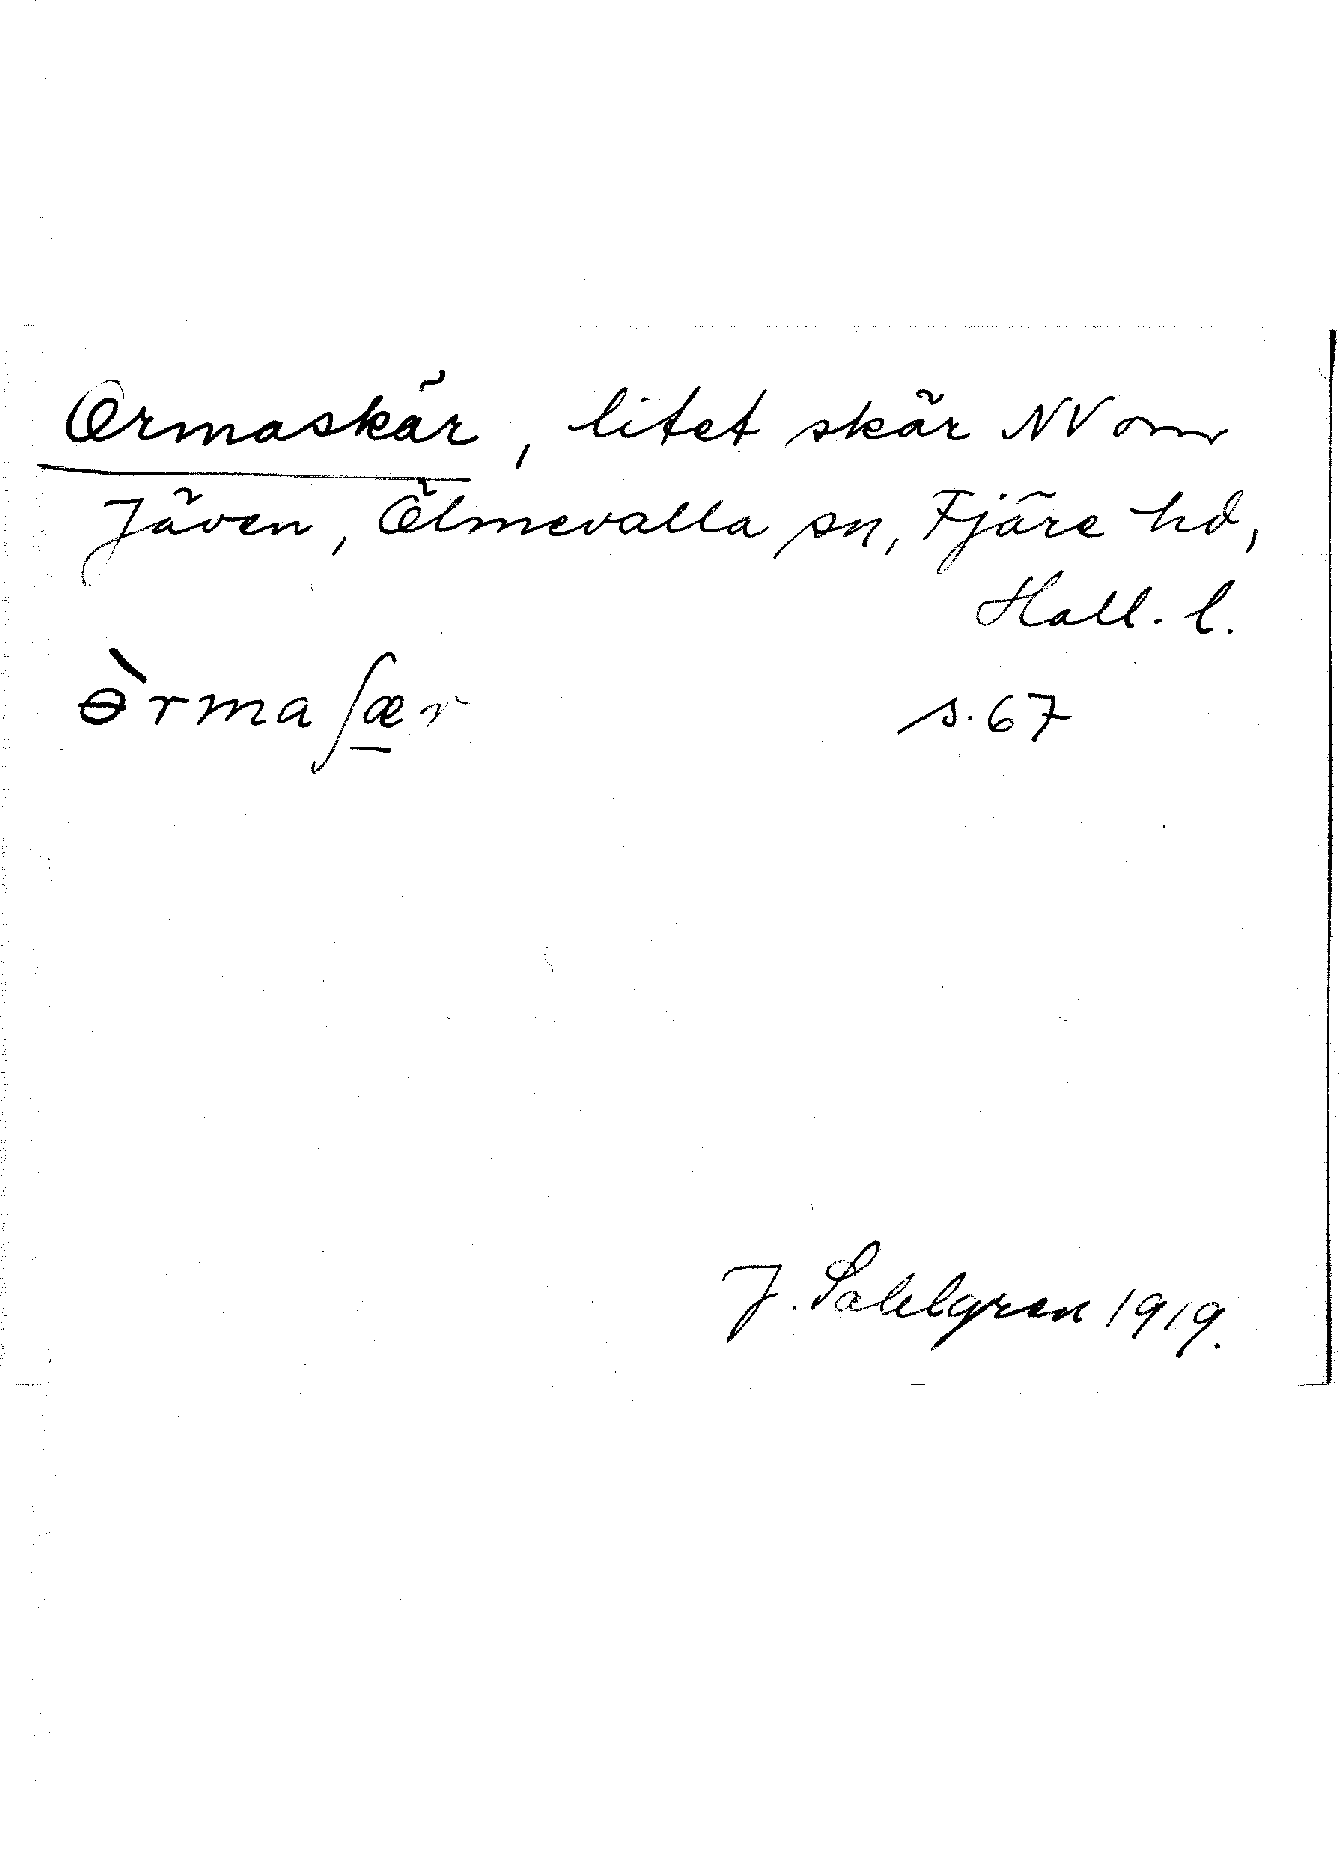 Ormaskär, litet skär NV om
Jäven, Ölmevalla sn, Fjäre hd,
Hall. l.
ɵ̀rmaʃæ̱r s. 67
J. Sahlgren 1919.